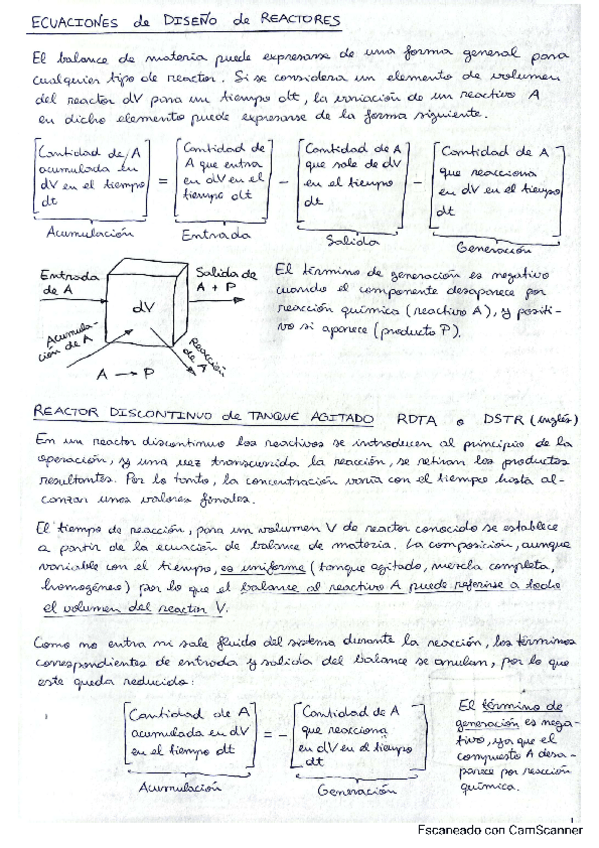 ECUACIONES de DISEÑO de REACTORES
El balance de materia puede expresarse de una forma general para
cualquier tipo de reactor. Si se considera un elemento de volumen
del reactor dV para un tiempo dt, la variación de un reactivo A
en dicho elemento puede expresarse de la forma siguiente.
[Cantidad de A acumulada en dV en el tiempo dt] = [Cantidad de A que entra en dV en el tiempo dt] - [Cantidad de A que sale de dV en el tiempo dt] - [Cantidad de A que reacciona en dV en el tiempo dt]
Acumulación Entrada Salida Generación
Entrada de A
Salida de A + P
dV
Acumulación de A
Reacción de A
A → P
El término de generación es negativo
cuando el componente desaparece por
reacción química (reactivo A), y positi-
vo si aparece (producto P).
REACTOR DISCONTINUO de TANQUE AGITADO RDTA o DSTR (inglés)
En un reactor discontinuo los reactivos se introducen al principio de la
operación, y una vez transcurrida la reacción, se retiran los productos
resultantes. Por lo tanto, la concentración varía con el tiempo hasta al-
canzar unos valores finales.
El tiempo de reacción, para un volumen V de reactor conocido se establece
a partir de la ecuación de balance de materia. La composición, aunque
variable con el tiempo, es uniforme (tanque agitado, mezcla completa,
homogéneo) por lo que el balance al reactivo A puede referirse a todo
el volumen del reactor V.
Como no entra ni sale fluido del sistema durante la reacción, los términos
correspondientes de entrada y salida del balance se anulan, por lo que
este queda reducido:
[Cantidad de A acumulada en dV en el tiempo dt] = - [Cantidad de A que reacciona en dV en el tiempo dt]
Acumulación Generación
El término de
generación es nega-
tivo, ya que el
compuesto A desa-
parece por reacción
química.
1
Escaneado con CamScanner